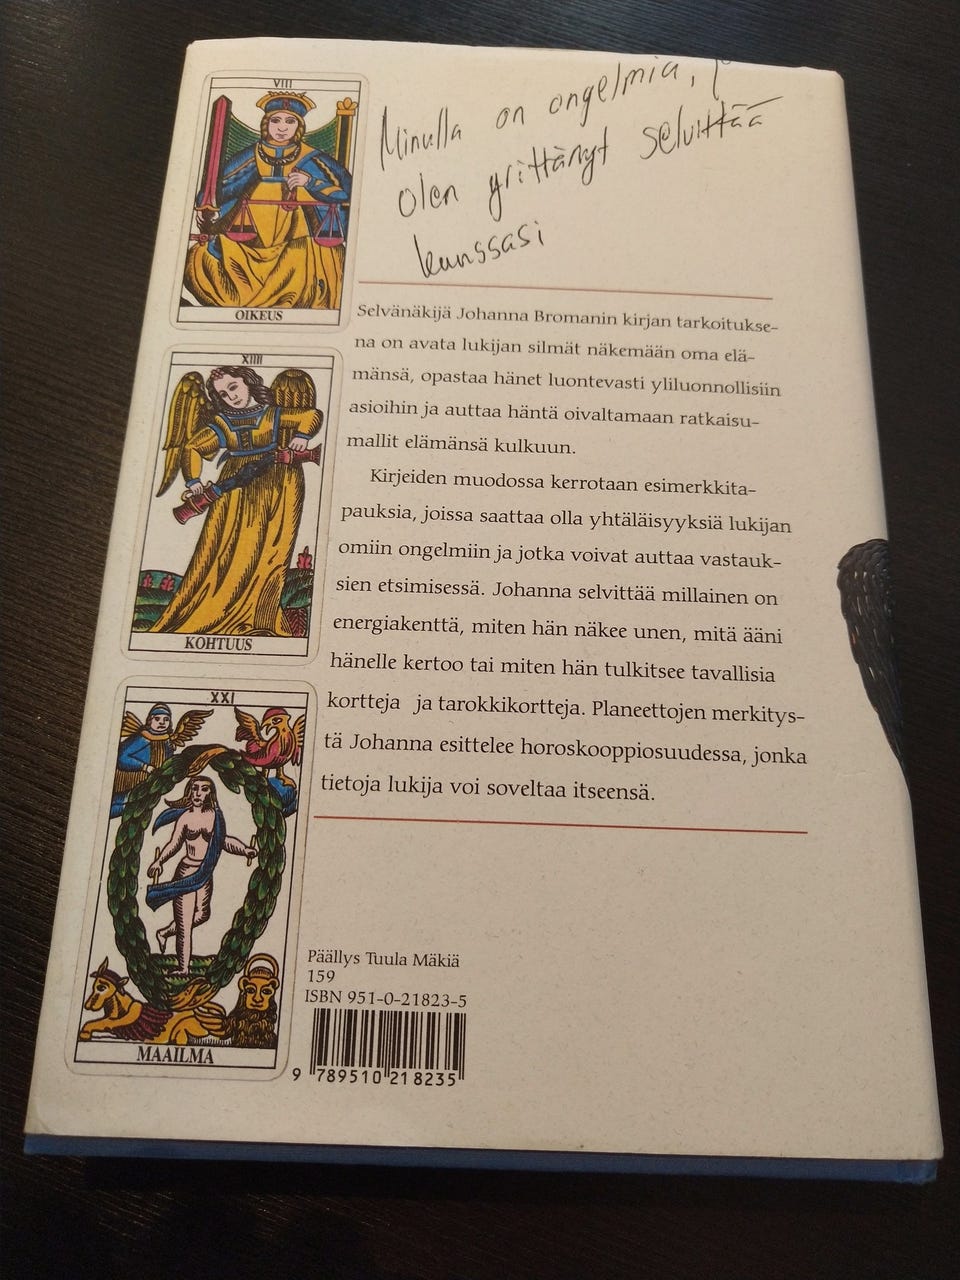 VIII
OIKEUS
XIIII
KOHTUUS
XXI
MAAILMA
Minulla on ongelmia,
olen yrittänyt selvittää
kanssasi
Selvänäkijä Johanna Bromanin kirjan tarkoitukse-
na on avata lukijan silmät näkemään oma elä-
mänsä, opastaa hänet luontevasti yliluonnollisiin
asioihin ja auttaa häntä oivaltamaan ratkaisu-
mallit elämänsä kulkuun.
Kirjeiden muodossa kerrotaan esimerkkita-
pauksia, joissa saattaa olla yhtäläisyyksiä lukijan
omiin ongelmiin ja jotka voivat auttaa vastauk-
sien etsimisessä. Johanna selvittää millainen on
energiakenttä, miten hän näkee unen, mitä ääni
hänelle kertoo tai miten hän tulkitsee tavallisia
kortteja ja tarokkikortteja. Planeettojen merkitys-
tä Johanna esittelee horoskooppiosuudessa, jonka
tietoja lukija voi soveltaa itseensä.
Päällys Tuula Mäkiä
159
ISBN 951-0-21823-5
9 789510 218235